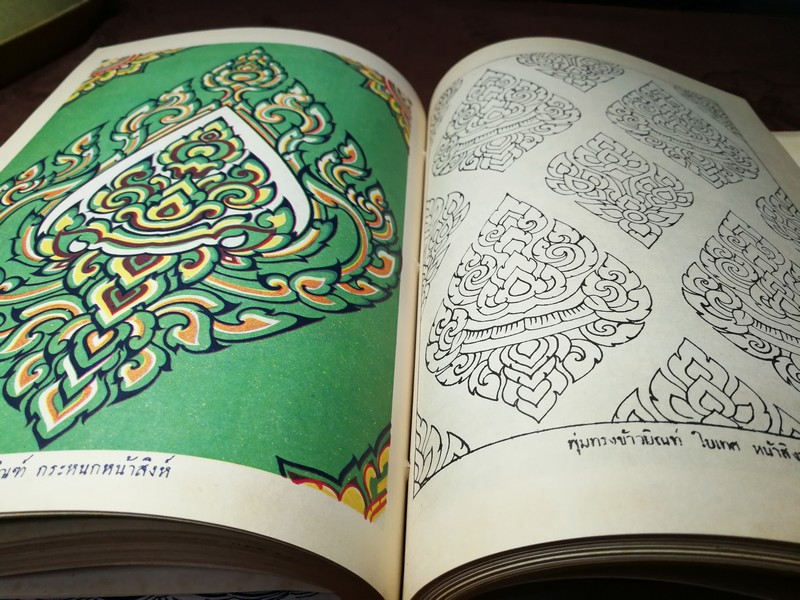 กระหนกหน้าสิงห์
พุ่มทรงข้าวบิณฑ์ ใบเทศ หน้าสิง